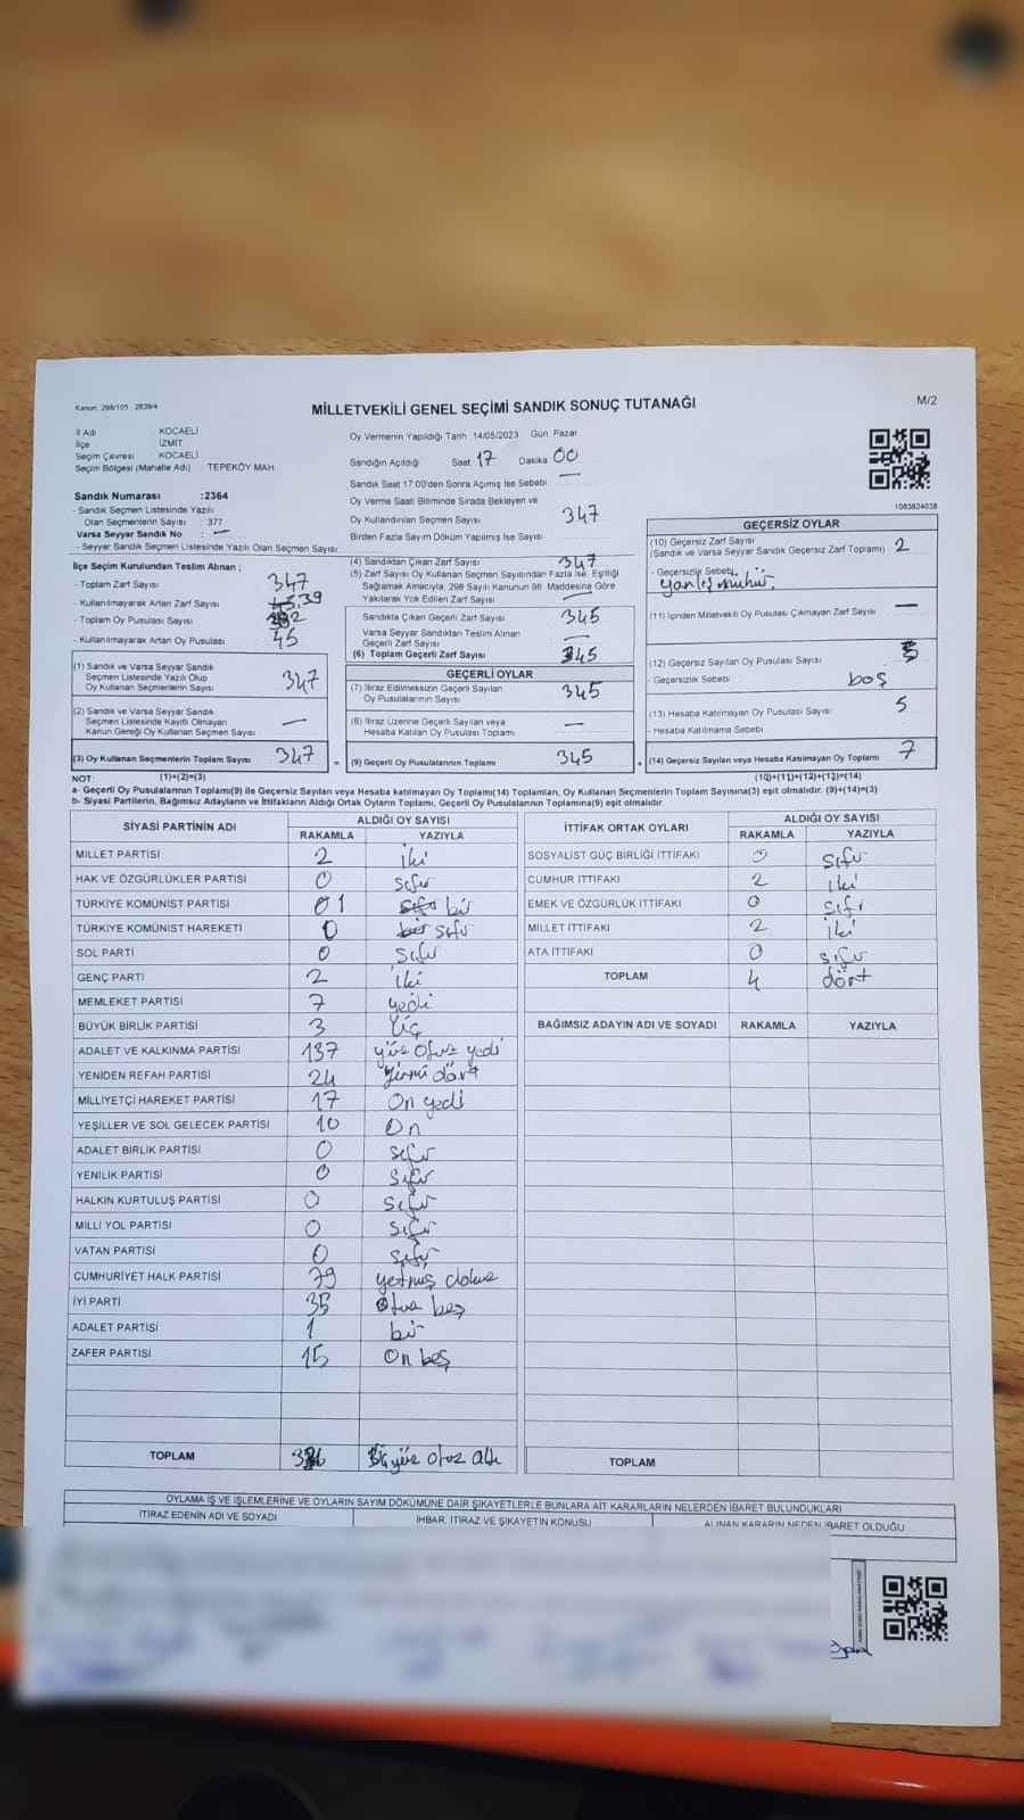 Kanun: 298/105 2839/4
MİLLETVEKİLİ GENEL SEÇİMİ SANDIK SONUÇ TUTANAĞI
M/2
İl Adı KOCAELİ
İlçe İZMİT
Seçim Çevresi KOCAELİ
Seçim Bölgesi (Mahalle Adı) TEPEKÖY MAH
Sandık Numarası :2364
- Sandık Seçmen Listesinde Yazılı
Olan Seçmenlerin Sayısı : 377
Varsa Seyyar Sandık No : —
- Seyyar Sandık Seçmen Listesinde Yazılı Olan Seçmen Sayısı
Oy Vermenin Yapıldığı Tarih 14/05/2023 Gün Pazar
Sandığın Açıldığı Saat 17 Dakika 00
Sandık Saat 17:00'den Sonra Açılmış İse Sebebi —
Oy Verme Saati Bitiminde Sırada Bekleyen ve
Oy Kullandırılan Seçmen Sayısı 347
Birden Fazla Sayım Döküm Yapılmış İse Sayısı
1083824038
İlçe Seçim Kurulundan Teslim Alınan ;
- Toplam Zarf Sayısı 347
- Kullanılmayarak Artan Zarf Sayısı 39
- Toplam Oy Pusulası Sayısı
- Kullanılmayarak Artan Oy Pusulası 45
(1) Sandık ve Varsa Seyyar Sandık
Seçmen Listesinde Yazılı Olup
Oy Kullanan Seçmenlerin Sayısı 347
(2) Sandık ve Varsa Seyyar Sandık
Seçmen Listesinde Kayıtlı Olmayan
Kanun Gereği Oy Kullanan Seçmen Sayısı —
(3) Oy Kullanan Seçmenlerin Toplam Sayısı 347
(4) Sandıktan Çıkan Zarf Sayısı 347
(5) Zarf Sayısı Oy Kullanan Seçmen Sayısından Fazla İse, Eşitliği
Sağlamak Amacıyla, 298 Sayılı Kanunun 98. Maddesine Göre
Yakılarak Yok Edilen Zarf Sayısı —
Sandıkta Çıkan Geçerli Zarf Sayısı 345
Varsa Seyyar Sandıktan Teslim Alınan
Geçerli Zarf Sayısı —
(6) Toplam Geçerli Zarf Sayısı 345
GEÇERLİ OYLAR
(7) İtiraz Edilmeksizin Geçerli Sayılan
Oy Pusulalarının Sayısı 345
(8) İtiraz Üzerine Geçerli Sayılan veya
Hesaba Katılan Oy Pusulası Toplamı —
= (9) Geçerli Oy Pusulalarının Toplamı 345
GEÇERSİZ OYLAR
(10) Geçersiz Zarf Sayısı
(Sandık ve Varsa Seyyar Sandık Geçersiz Zarf Toplamı) 2
- Geçersizlik Sebebi
yanlış mühür.
(11) İçinden Milletvekili Oy Pusulası Çıkmayan Zarf Sayısı —
(12) Geçersiz Sayılan Oy Pusulası Sayısı
- Geçersizlik Sebebi boş
(13) Hesaba Katılmayan Oy Pusulası Sayısı 5
- Hesaba Katılmama Sebebi
+ (14) Geçersiz Sayılan veya Hesaba Katılmayan Oy Toplamı 7
NOT: (1)+(2)=(3)
(10)+(11)+(12)+(13)=(14)
a- Geçerli Oy Pusulalarının Toplamı(9) ile Geçersiz Sayılan veya Hesaba katılmayan Oy Toplamı(14) Toplamları, Oy Kullanan Seçmenlerin Toplam Sayısına(3) eşit olmalıdır. (9)+(14)=(3)
b- Siyasi Partilerin, Bağımsız Adayların ve İttifakların Aldığı Ortak Oyların Toplamı, Geçerli Oy Pusulalarının Toplamına(9) eşit olmalıdır.
SİYASİ PARTİNİN ADI ALDIĞI OY SAYISI
RAKAMLA YAZIYLA
MİLLET PARTİSİ 2 iki
HAK VE ÖZGÜRLÜKLER PARTİSİ 0 sıfır
TÜRKİYE KOMÜNİST PARTİSİ 01 sıfır bir
TÜRKİYE KOMÜNİST HAREKETİ 0 bir sıfır
SOL PARTİ 0 sıfır
GENÇ PARTİ 2 iki
MEMLEKET PARTİSİ 7 yedi
BÜYÜK BİRLİK PARTİSİ 3 üç
ADALET VE KALKINMA PARTİSİ 137 yüz otuz yedi
YENİDEN REFAH PARTİSİ 24 Yirmi dört
MİLLİYETÇİ HAREKET PARTİSİ 17 On yedi
YEŞİLLER VE SOL GELECEK PARTİSİ 10 On
ADALET BİRLİK PARTİSİ 0 sıfır
YENİLİK PARTİSİ 0 sıfır
HALKIN KURTULUŞ PARTİSİ 0 sıfır
MİLLİ YOL PARTİSİ 0 sıfır
VATAN PARTİSİ 0 sıfır
CUMHURİYET HALK PARTİSİ 79 yetmiş dokuz
İYİ PARTİ 35 Otuz beş
ADALET PARTİSİ 1 bir
ZAFER PARTİSİ 15 On beş
TOPLAM otuz altı
İTTİFAK ORTAK OYLARI ALDIĞI OY SAYISI
RAKAMLA YAZIYLA
SOSYALİST GÜÇ BİRLİĞİ İTTİFAKI 0 sıfır
CUMHUR İTTİFAKI 2 iki
EMEK VE ÖZGÜRLÜK İTTİFAKI 0 sıfır
MİLLET İTTİFAKI 2 iki
ATA İTTİFAKI 0 sıfır
TOPLAM 4 dört
BAĞIMSIZ ADAYIN ADI VE SOYADI RAKAMLA YAZIYLA
TOPLAM
OYLAMA İŞ VE İŞLEMLERİNE VE OYLARIN SAYIM DÖKÜMÜNE DAİR ŞİKAYETLERLE BUNLARA AİT KARARLARIN NELERDEN İBARET BULUNDUKLARI
İTİRAZ EDENİN ADI VE SOYADI İHBAR, İTİRAZ VE ŞİKAYETİN KONUSU ALINAN KARARIN NEDEN İBARET OLDUĞU